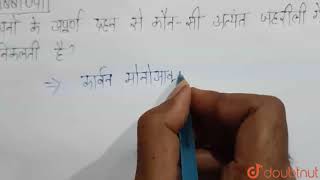 के अपूर्ण दहन से कौन-सी अत्यंत जहरीली
निकलती है?
⇒ कार्बन मोनोआक
doubtnut